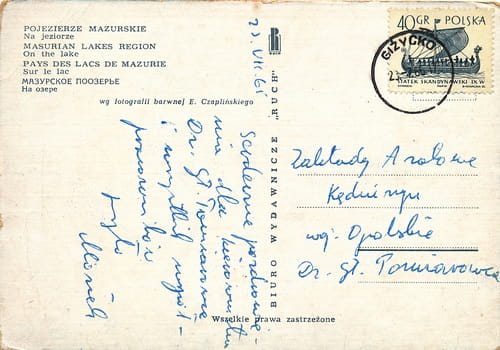 POJEZIERZE MAZURSKIE
Na jeziorze
MASURIAN LAKES REGION
On the lake
PAYS DES LACS DE MAZURIE
Sur le lac
МАЗУРСКОЕ ПООЗЕРЬЕ
На озере
wg fotografii barwnej E. Czaplińskiego
23.VII.61
Serdeczne pozdrowie-
nia dla kierownictwa
Dr. Gł.
i wszystkich
BIURO WYDAWNICZE „RUCH"
40 GR POLSKA
STATEK SKANDYNAWSKI IX W
GIŻYCKO
Zakłady Azotowe
Kędzierzyn
woj. Opolskie
Dr. Gł.
Wszelkie prawa zastrzeżone